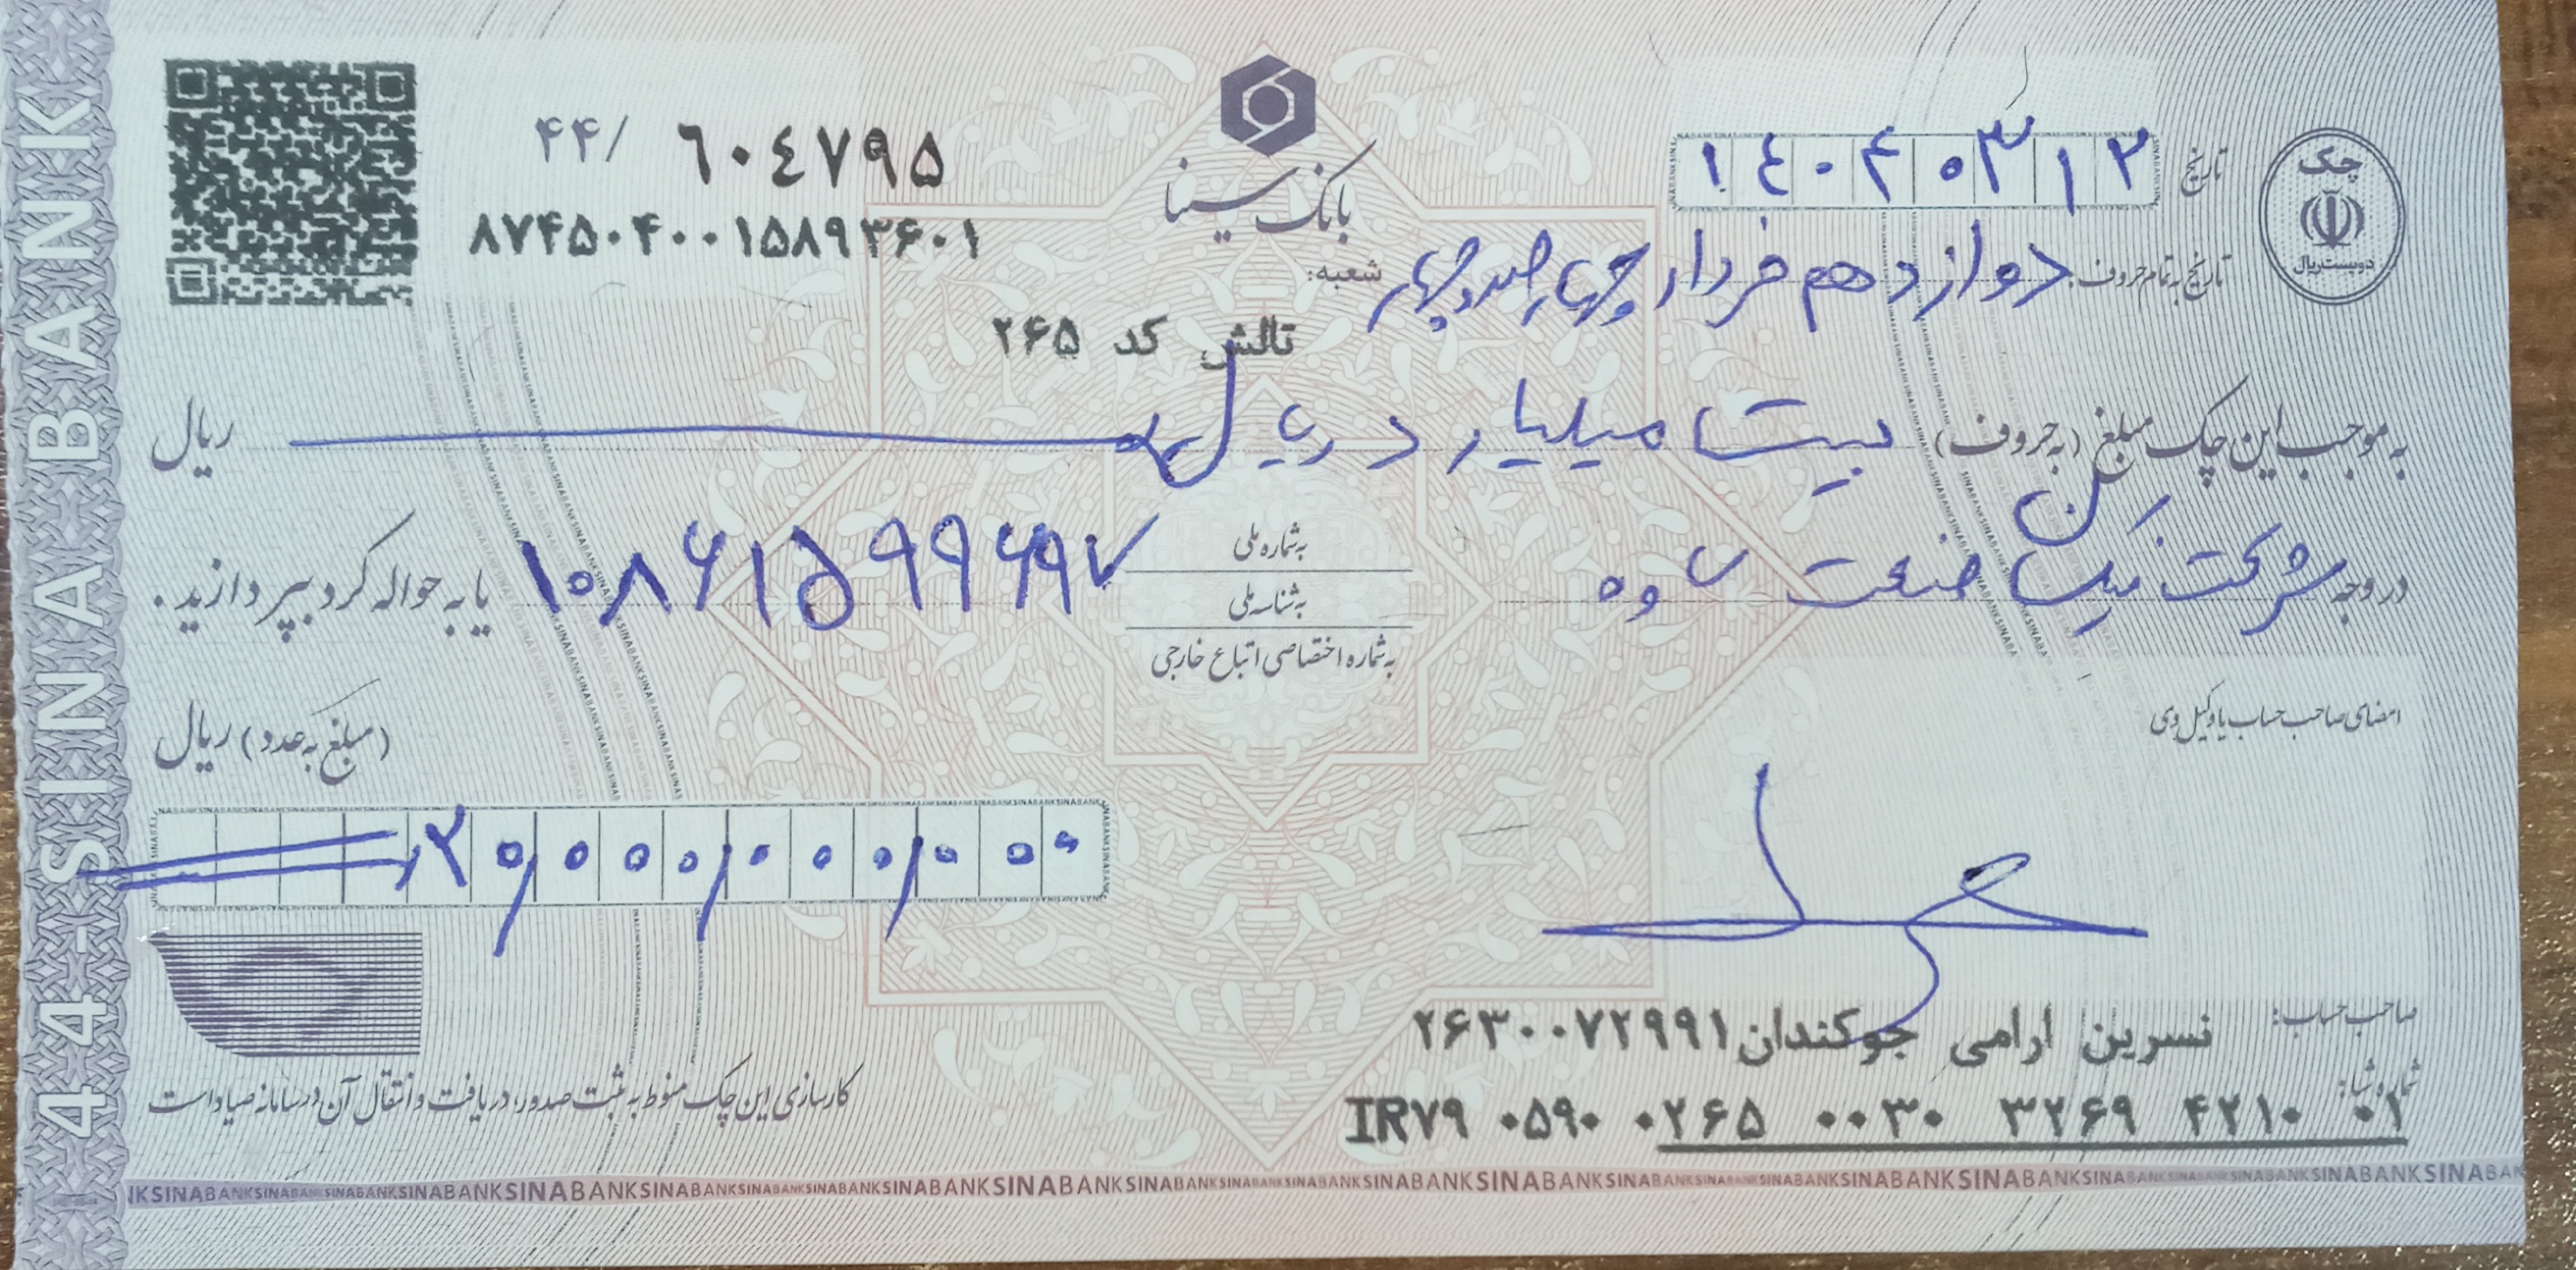 چک
دویست ریال
تاریخ ۱۴۰۴۰۳۱۲
تاریخ به تمام حروف: دوازدهم خرداد چهارصد و چهار
بانک سینا
شعبه:
تالش کد ۲۶۵
۴۴/ ٦٠٤٧٩٥
۸۷۴۵۰۴۰۰۱۵۸۹۳۶۰۱
به موجب این چک مبلغ (به حروف) بیست میلیارد ریال ریال
در وجه شرکت نیک صنعت ساوه
به شماره ملی
به شناسه ملی
به شماره اختصاصی اتباع خارجی
۱۰۸۶۱۵۹۹۶۹۷ یا به حواله کرد بپردازید.
امضای صاحب حساب یا وکیل وی
(مبلغ به عدد) ریال
۲۰/۰۰۰/۰۰۰/۰۰۰
صاحب حساب: نسرین ارامی جوکندان ۲۶۳۰۰۷۲۹۹۱
شماره شبا: IR۷۹ ۰۵۹۰ ۰۲۶۵ ۰۰۳۰ ۳۲۶۹ ۴۲۱۰ ۰۱
کارسازی این چک منوط به ثبت صدور، دریافت و انتقال آن در سامانه صیاد است
44-SINA BANK
SINABANK